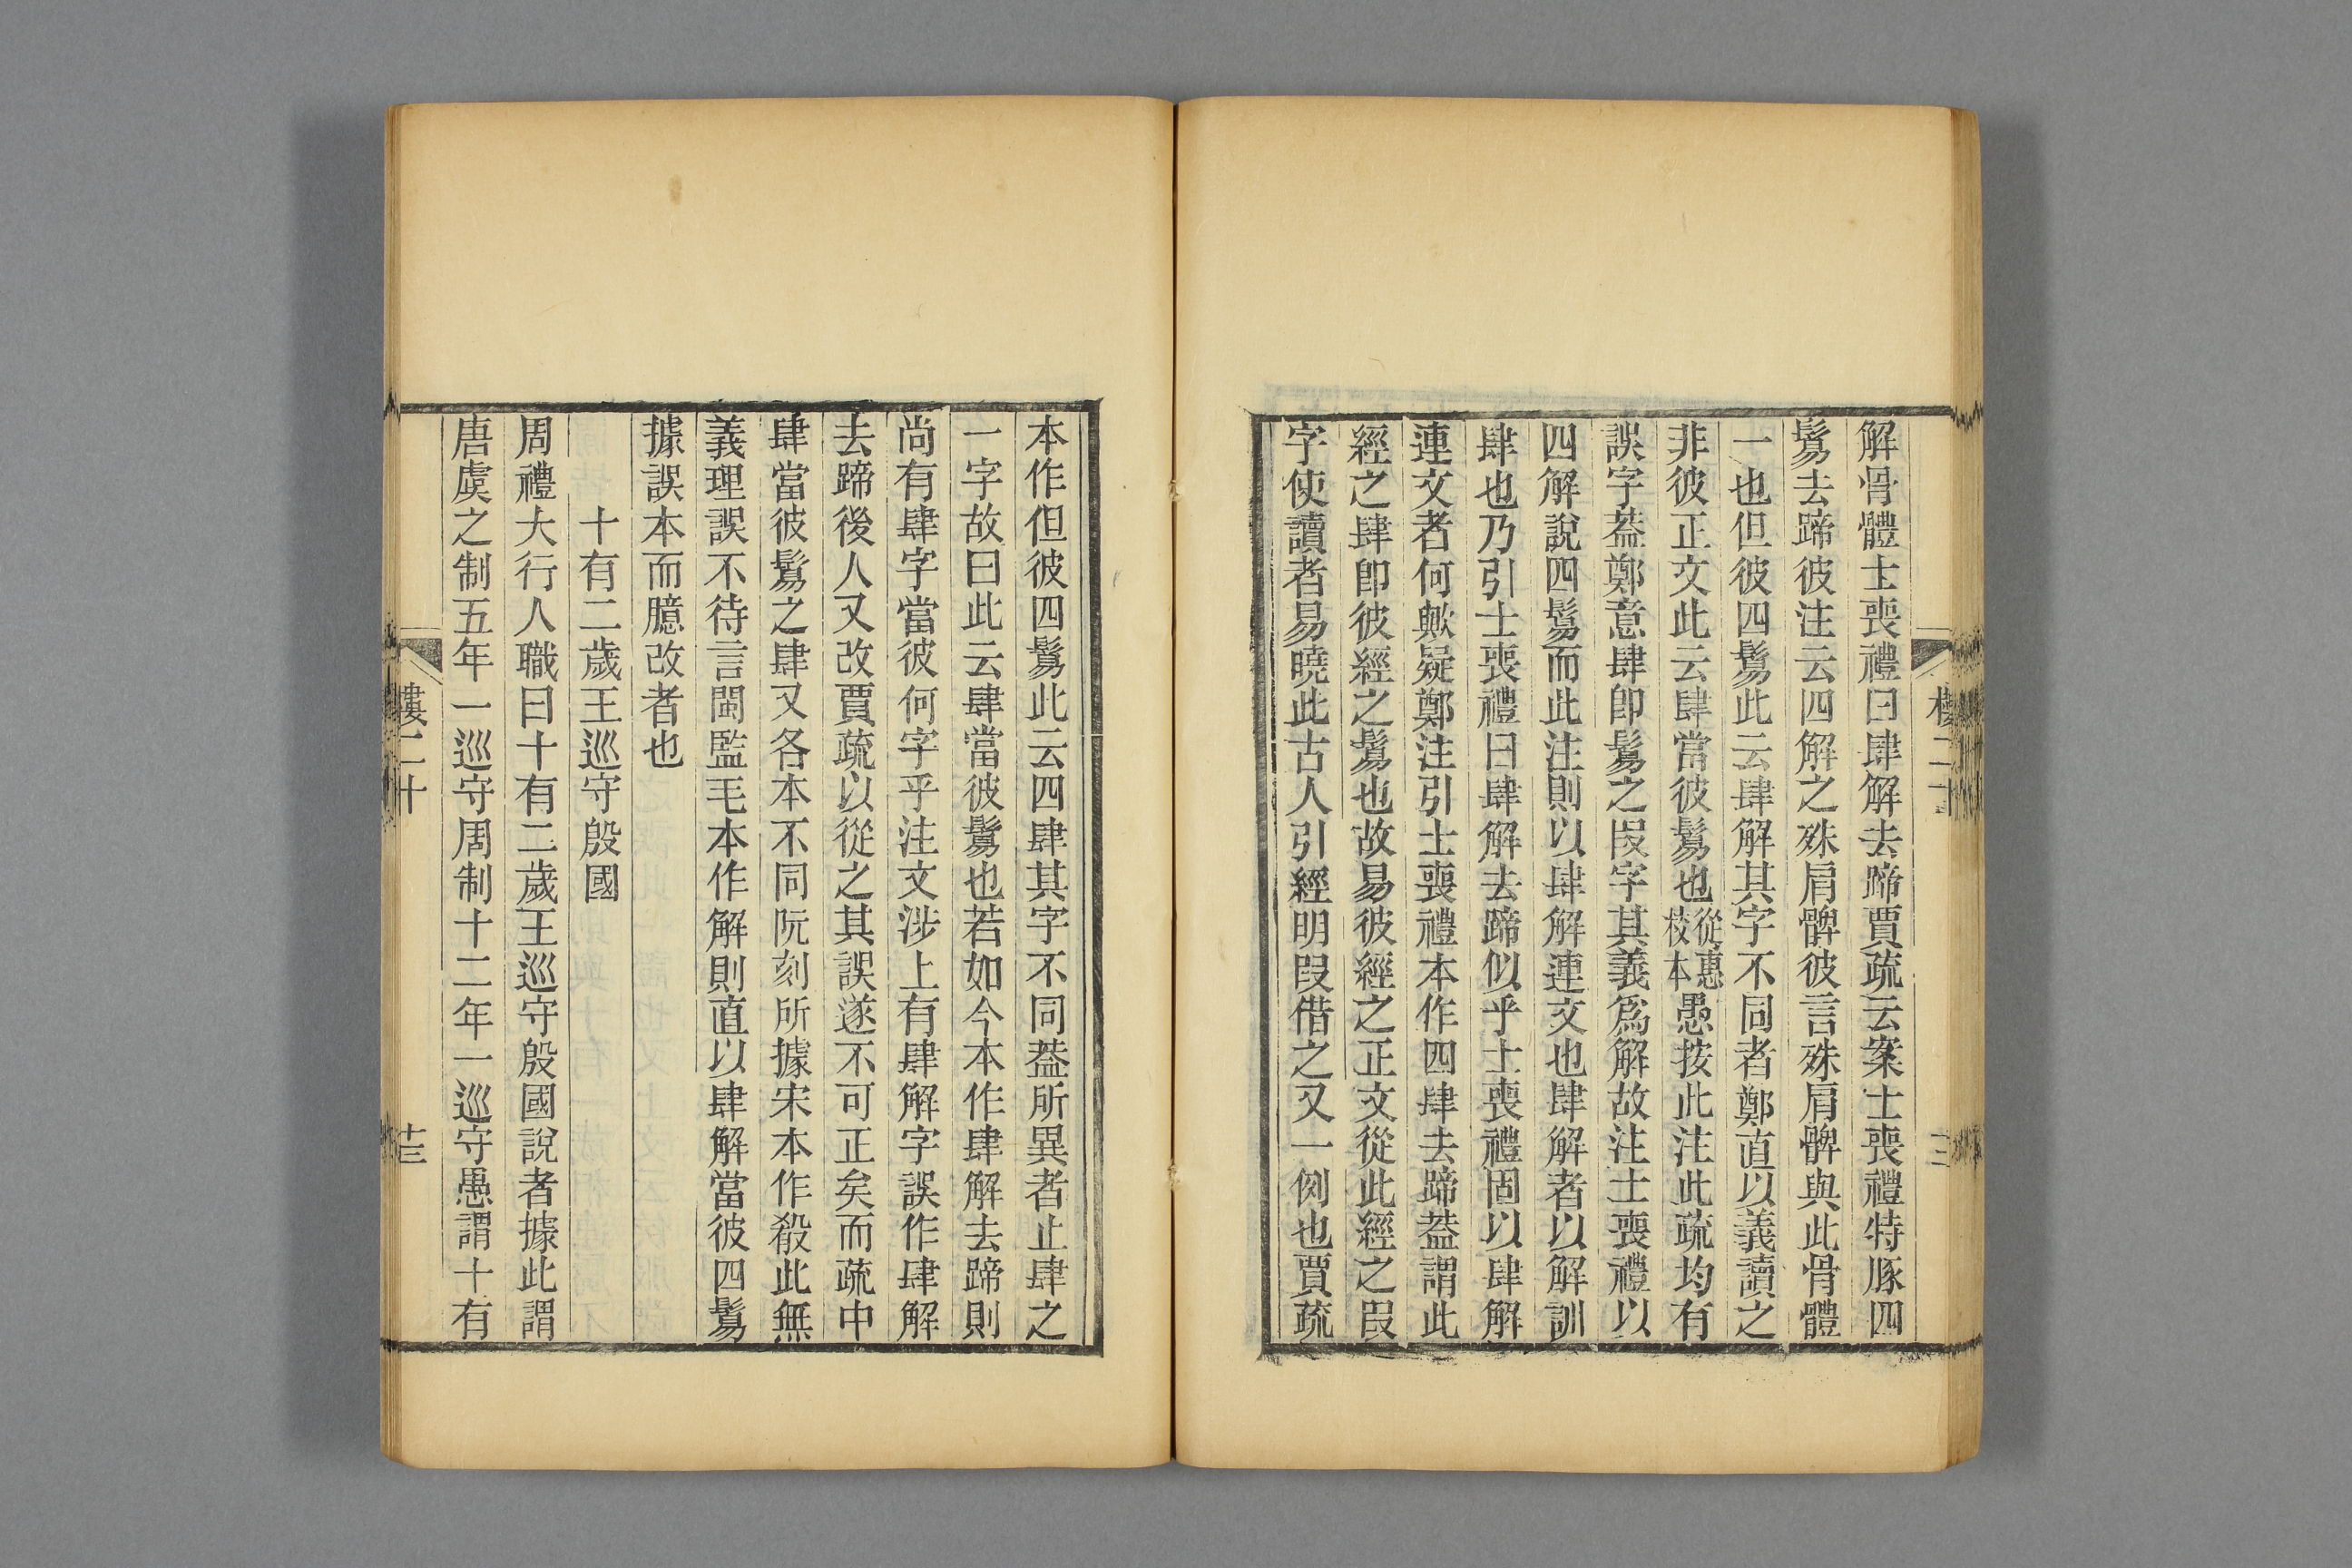 解骨體士喪禮曰肆解去蹄賈疏云案士喪禮特豚四
鬄去蹄彼注云四解之殊肩髀彼言殊肩髀與此骨體
一也但彼四鬄此云肆解其字不同者鄭直以義讀之
非彼正文此云肆當彼鬄也從惠校本愚按此注此疏均有
誤字葢鄭意肆卽鬄之叚字其義爲解故注士喪禮以
四解說四鬄而此注則以肆解連文也肆解者以解訓
肆也乃引士喪禮曰肆解去蹄似乎士喪禮固以肆解
連文者何歟疑鄭注引士喪禮本作四肆去蹄葢謂此
經之肆卽彼經之鬄也故易彼經之正文從此經之叚
字使讀者易曉此古人引經明叚借之又一例也賈疏
樓二十
本作但彼四鬄此云四肆其字不同葢所異者止肆之
一字故曰此云肆當彼鬄也若如今本作肆解去蹄則
尚有肆字當彼何字乎注文涉上有肆解字誤作肆解
去蹄後人又改賈疏以從之其誤遂不可正矣而疏中
肆當彼鬄之肆又各本不同阮刻所據宋本作殺此無
義理誤不待言閩監毛本作解則直以肆解當彼四鬄
據誤本而臆改者也
十有二歲王巡守殷國
周禮大行人職曰十有二歲王巡守殷國說者據此謂
唐虞之制五年一巡守周制十二年一巡守愚謂十有
樓二十
十三